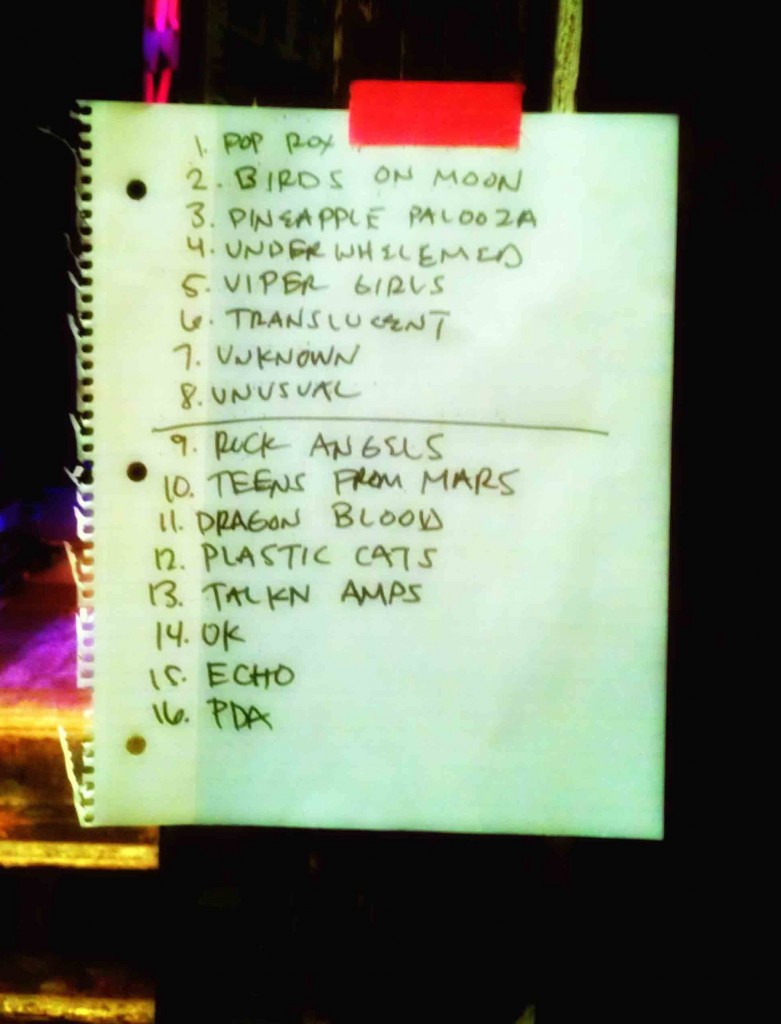 1. POP ROX
2. BIRDS ON MOON
3. PINEAPPLE PALOOZA
4. UNDERWHELEMED
5. VIPER GIRLS
6. TRANSLUCENT
7. UNKNOWN
8. UNUSUAL
9. ROCK ANGELS
10. TEENS FROM MARS
11. DRAGON BLOOD
12. PLASTIC CATS
13. TALKN AMPS
14. OK
15. ECHO
16. PDA